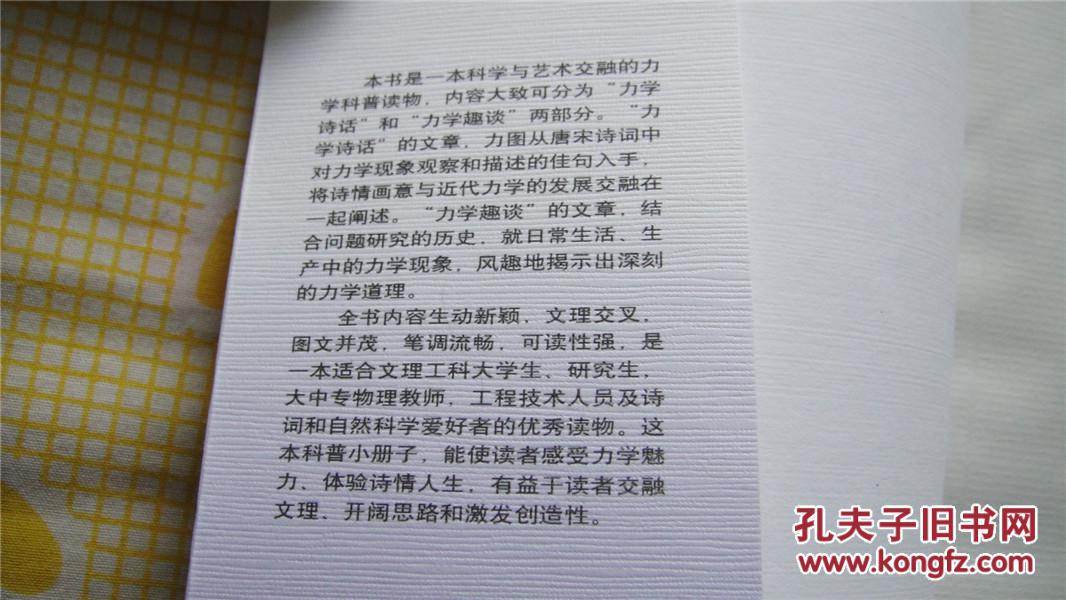 本书是一本科学与艺术交融的力
学科普读物，内容大致可分为“力学
诗话”和“力学趣谈”两部分。“力
学诗话”的文章，力图从唐宋诗词中
对力学现象观察和描述的佳句入手，
将诗情画意与近代力学的发展交融在
一起阐述。“力学趣谈”的文章，结
合问题研究的历史，就日常生活、生
产中的力学现象，风趣地揭示出深刻
的力学道理。
全书内容生动新颖，文理交叉，
图文并茂，笔调流畅，可读性强，是
一本适合文理工科大学生、研究生，
大中专物理教师，工程技术人员及诗
词和自然科学爱好者的优秀读物。这
本科普小册子，能使读者感受力学魅
力、体验诗情人生，有益于读者交融
文理、开阔思路和激发创造性。
孔夫子旧书网
www.kongfz.com